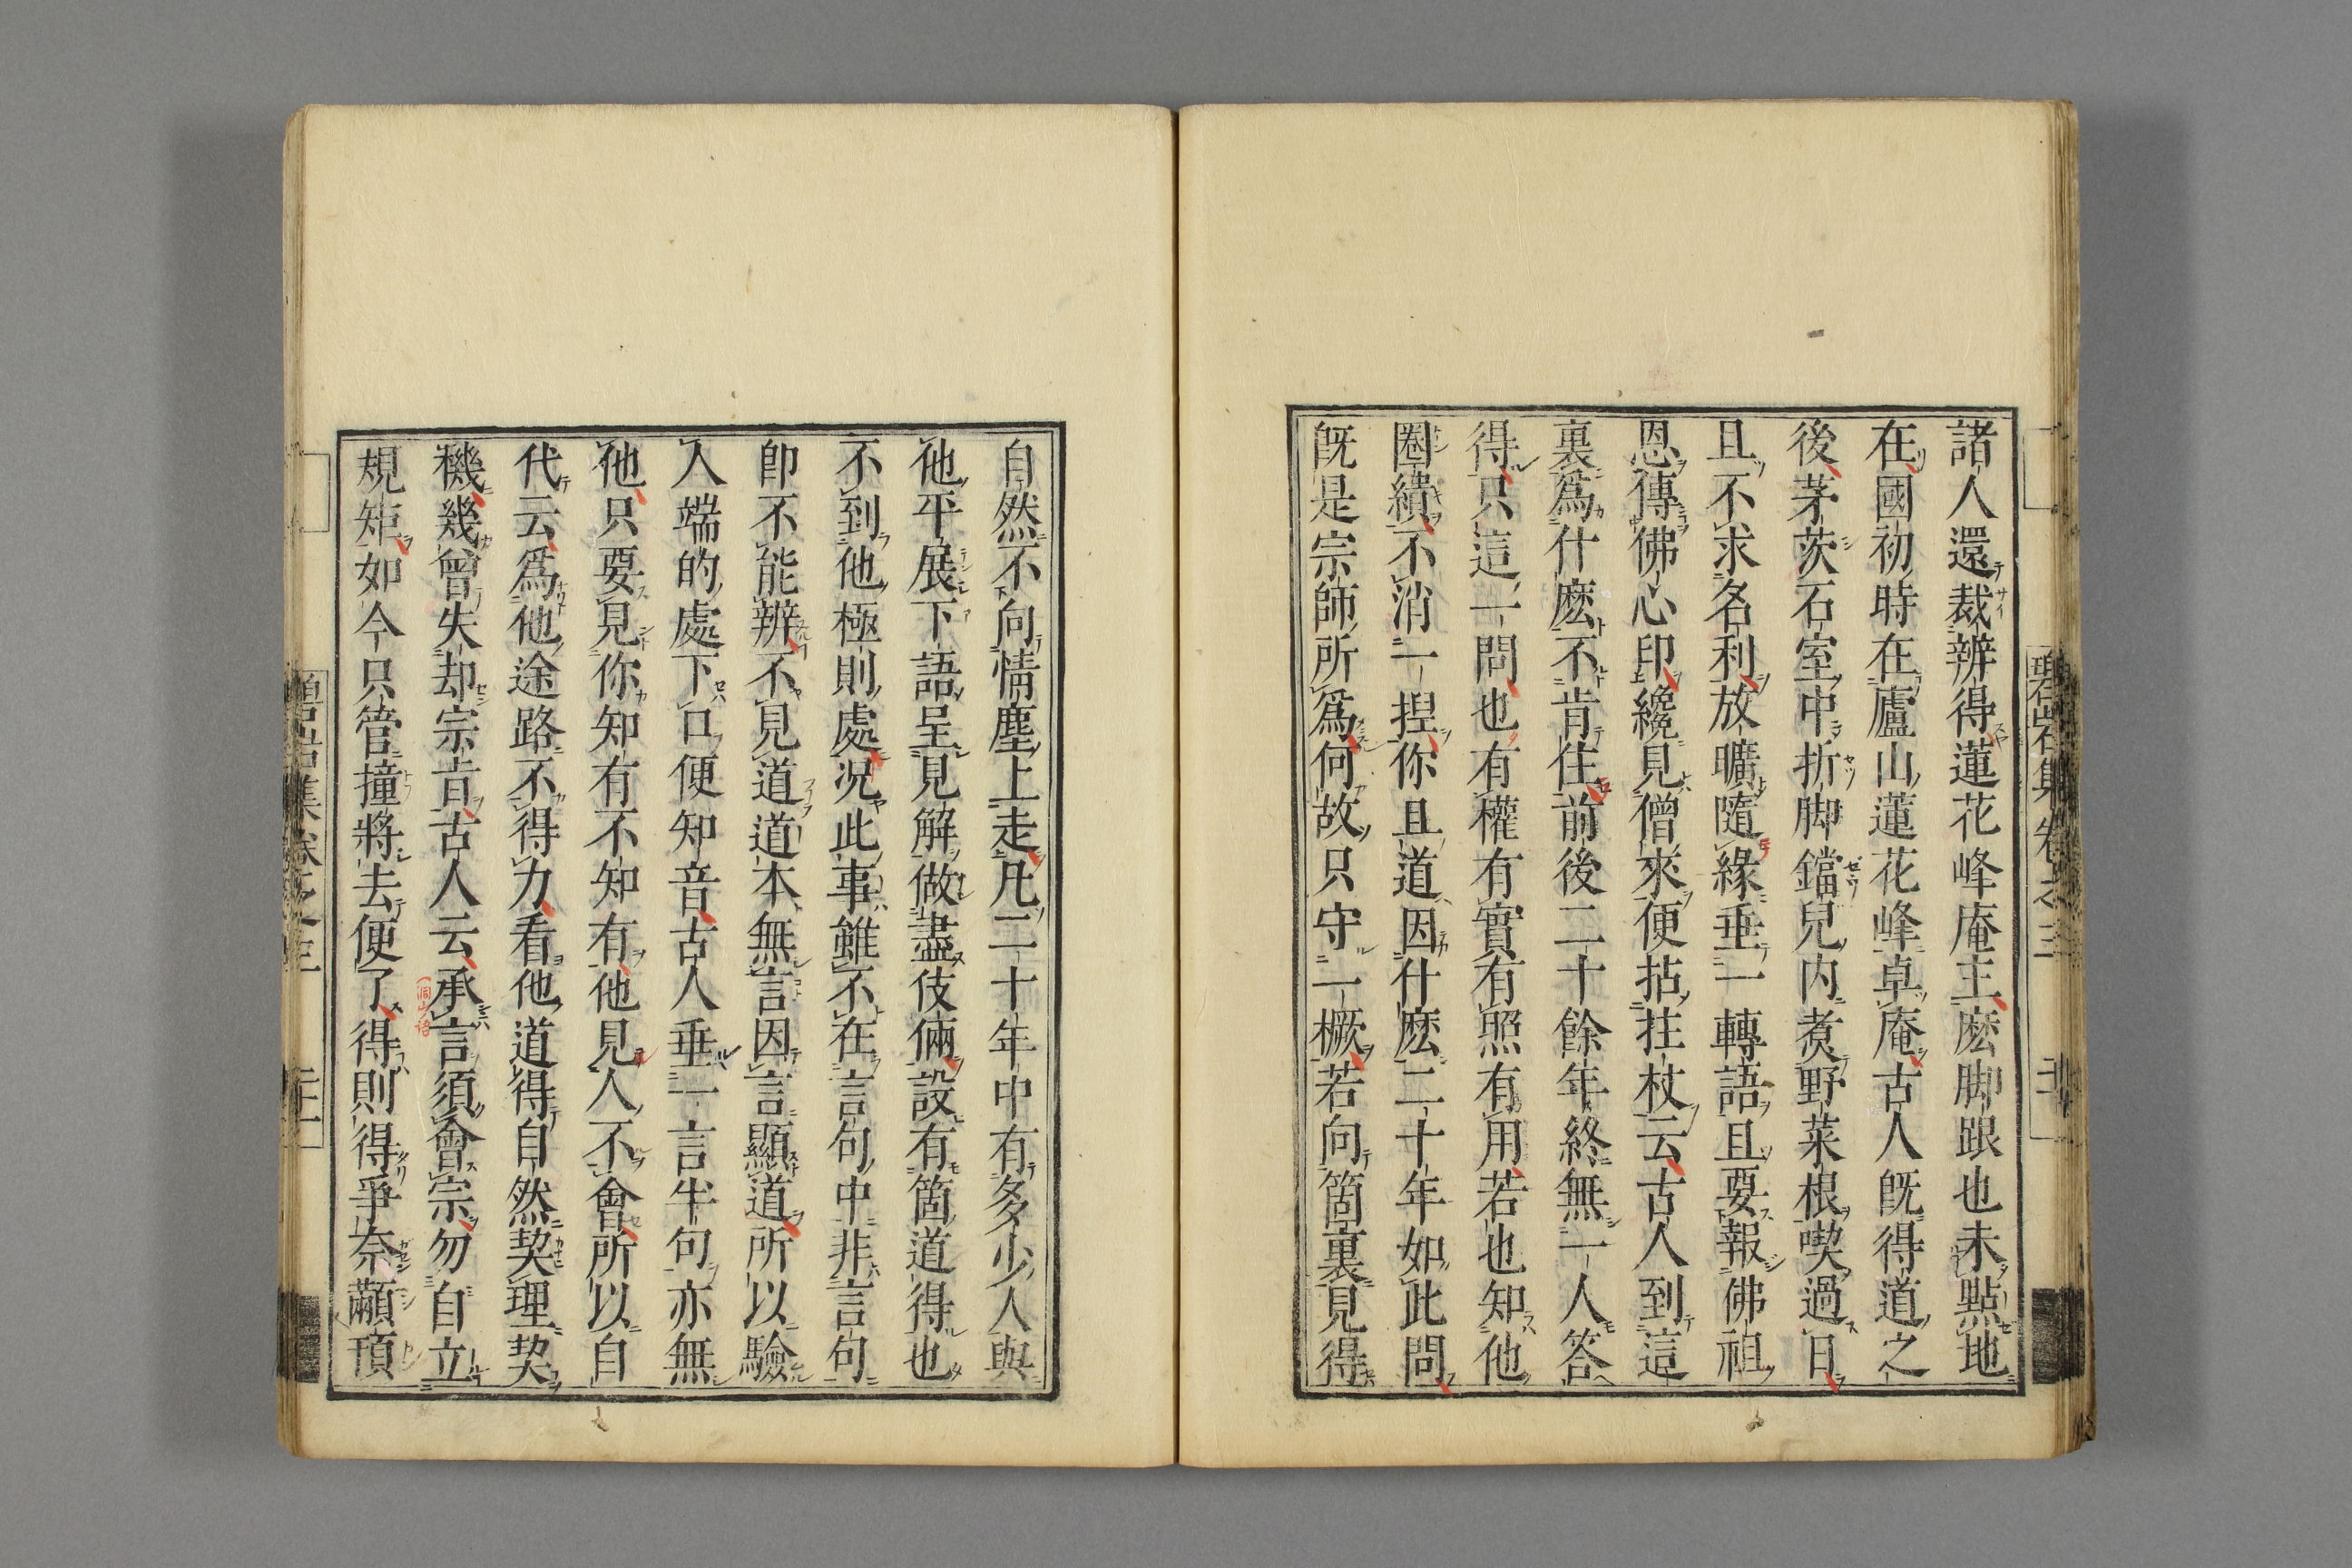 諸人還裁辨得蓮花峰庵主麽脚跟也未點地
在國初時在廬山蓮花峰卓庵古人既得道之
後茅茨石室中折脚鐺兒内煮野菜根喫過日
且不求名利放曠隨緣垂一轉語且要報佛祖
恩傳佛心印纔見僧來便拈拄杖云古人到這
裏爲什麽不肯住前後二十餘年終無一人答
得只這一問也有權有實有照有用若也知他
圈繢不消一揑你且道因什麽二十年如此問
既是宗師所爲何故只守一橛若向箇裏見得
自然不向情塵上走凡二十年中有多少人與
他平展下語呈見解做盡伎倆設有箇道得也
不到他極則處況此事雖不在言句中非言句
即不能辨不見道道本無言因言顯道所以驗
人端的處下口便知音古人垂一言半句亦無
他只要見你知有不知有他見人不會所以自
代云爲他途路不得力看他道得自然契理契
機幾曾失却宗旨古人云承言須會宗勿自立
規矩如今只管撞將去便了得則得爭奈顢頇
洞山語
碧岩集卷之三
碧岩集卷之三